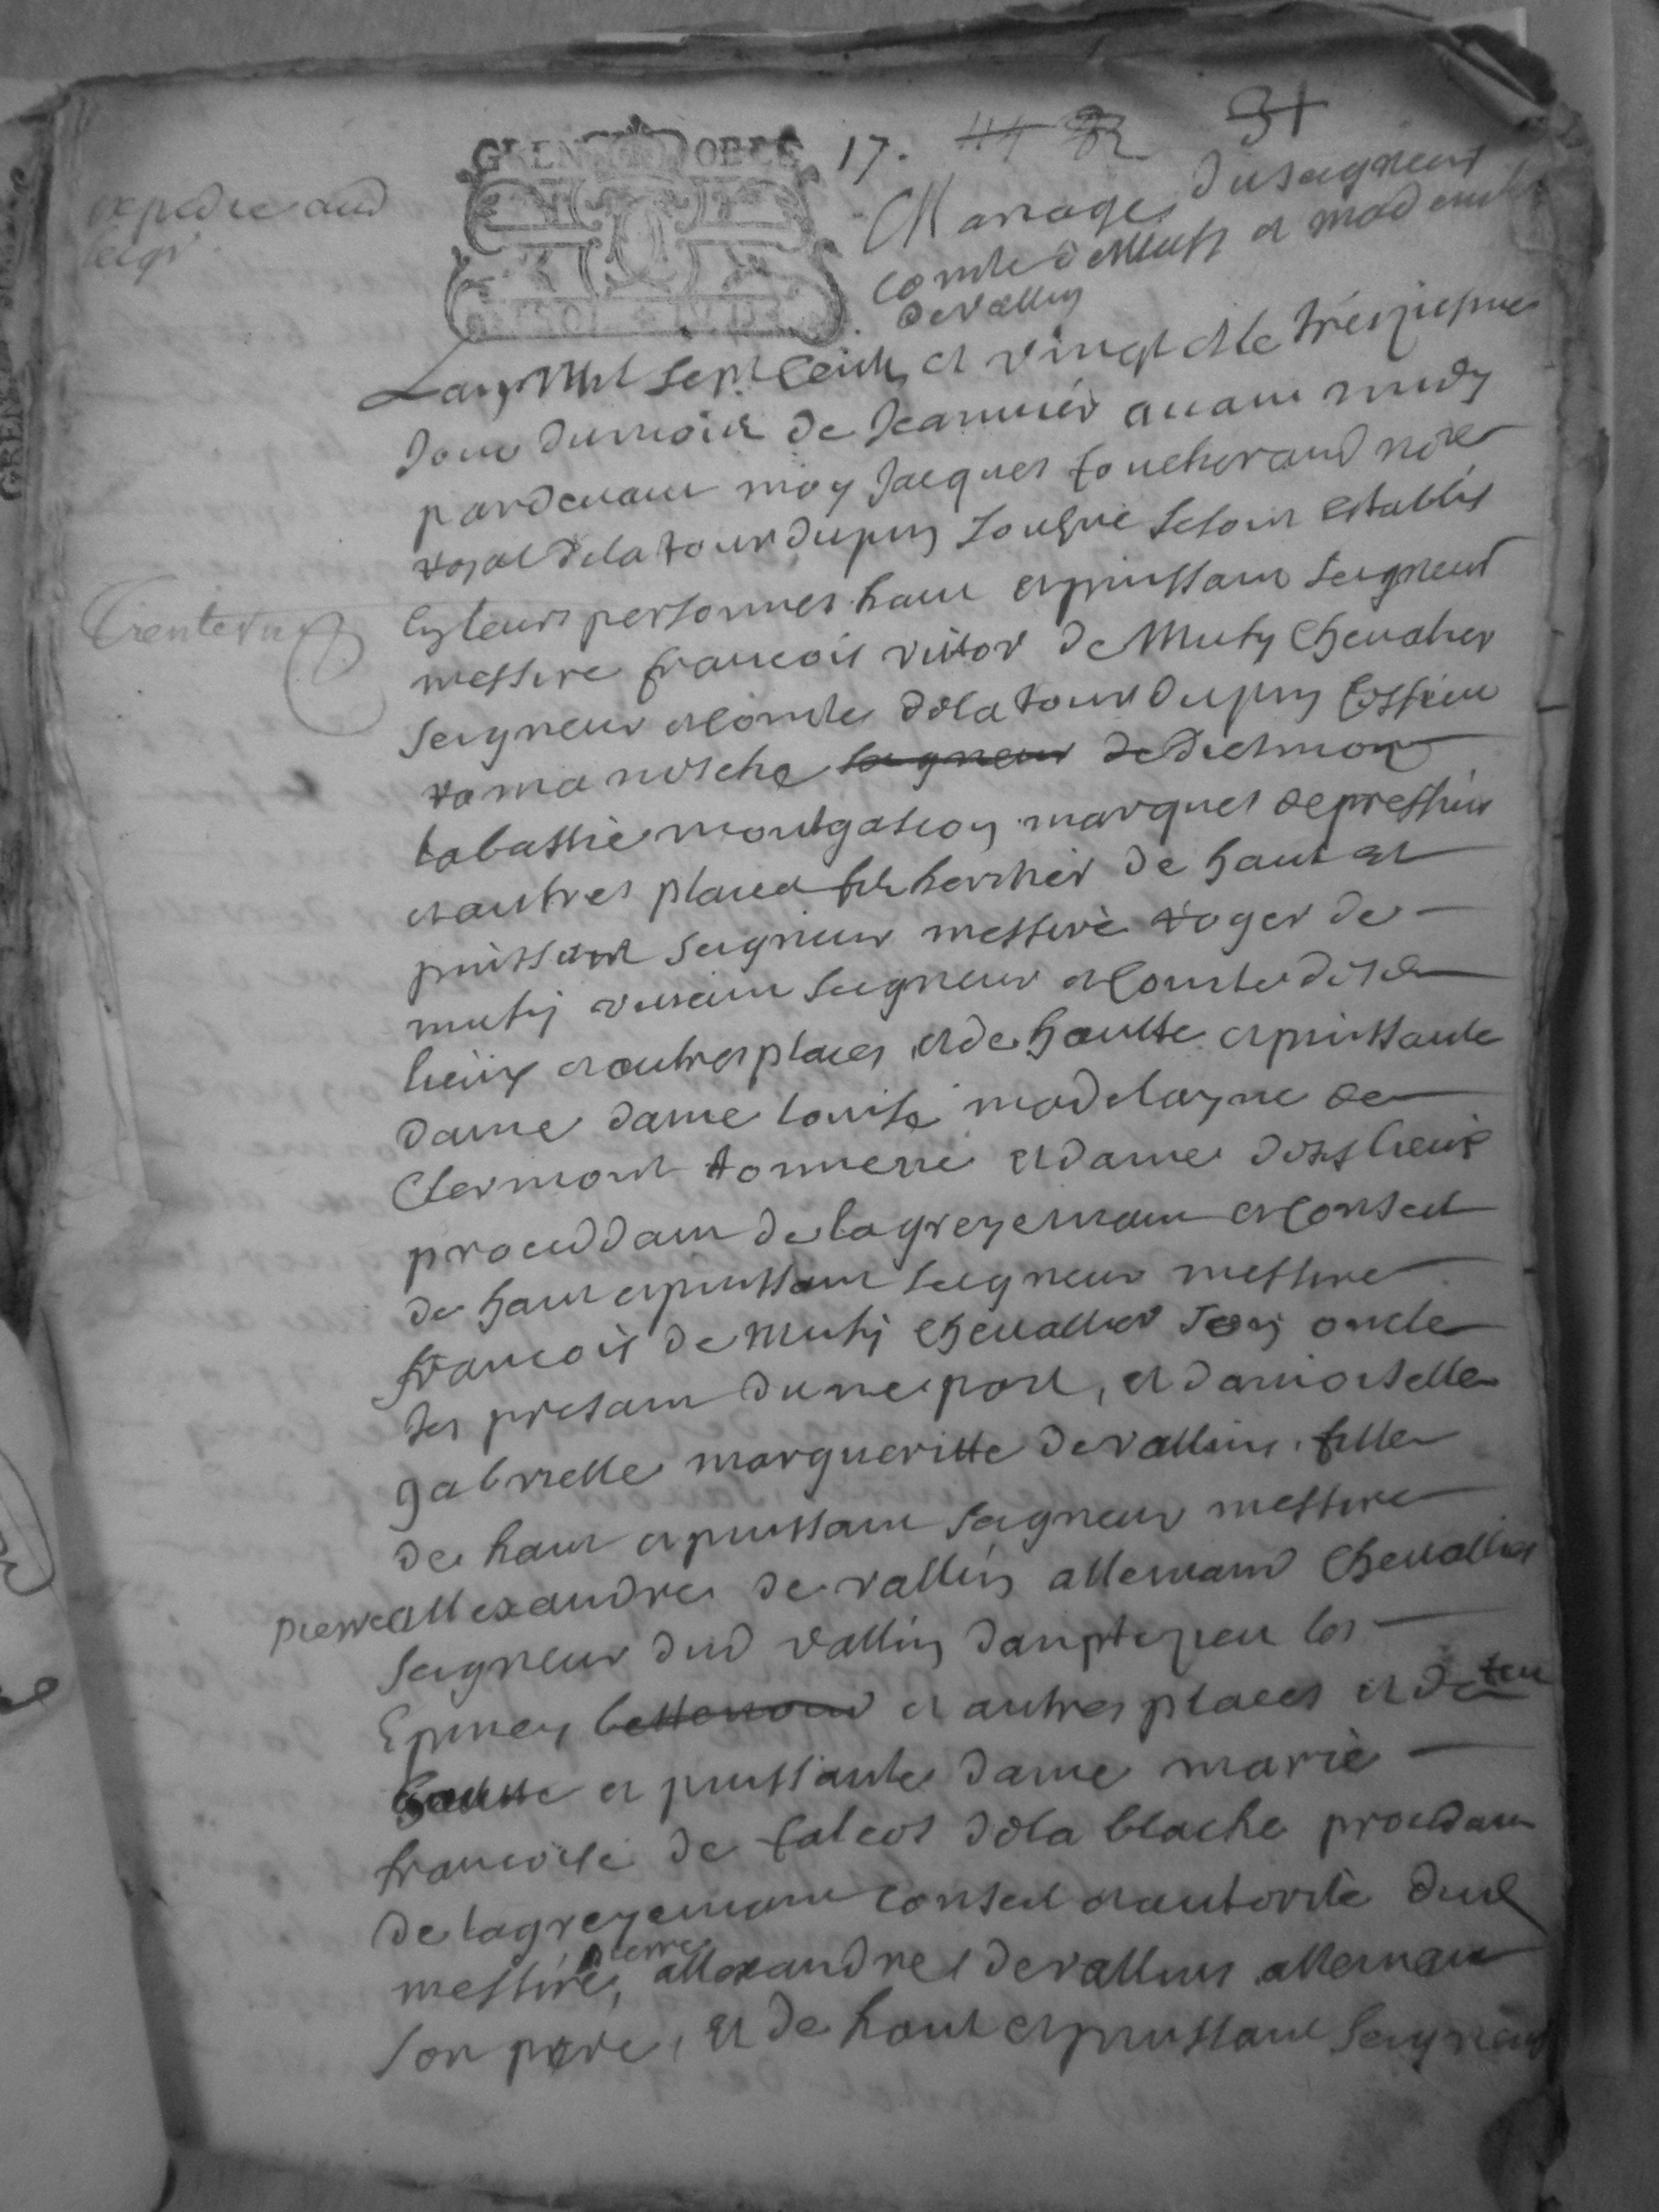 GRENOBLE
17. 31
expedie aud
segr
Mariage du seigneur
comte de Musy et mad emlle
de vallin
Trente un
Lan Mil Sept Centz et vingt et le tréziesme
Jour du mois de Jeanvier avant midy
pardevant moy Jacques foucherand nore
royal de la tour du pin soubsné se sont establis
En leurs personnes haut et puissant seigneur
messire francois victor de Musy Chevalier
seigneur et Comte de la tour du pin Cessieu
romanesche seigneur de diesmoz
labastie montgascon marquis de pressins
et autres places fils heritier de haut et
puissant seigneur messire roger de
musy vivant seigneur et Comte desd
lieux et autres places, et de haulte et puissante
dame dame Louise madelayne de
Clermont tonnerre et dame desds lieux
proceddant de lagreyement et Conseil
de haut et puissant seigneur messire
francois de Musy chevallier son oncle
Jcy present dune part, et damoiselle
gabrielle margueritte de vallins, fille
de haut et puissant seigneur messire
pierre allexandre de vallin allemand Chevallier
seigneur dud vallin dauptezieu los
Epiney bettenoud et autres places et de feu
haulte et puissante dame marie
francoise de falcos de la blache proceddant
de lagreyement conseil et autorité dud
messire, pierre allexandre de vallins alleman
son père, et de haut et puissant Seigneur